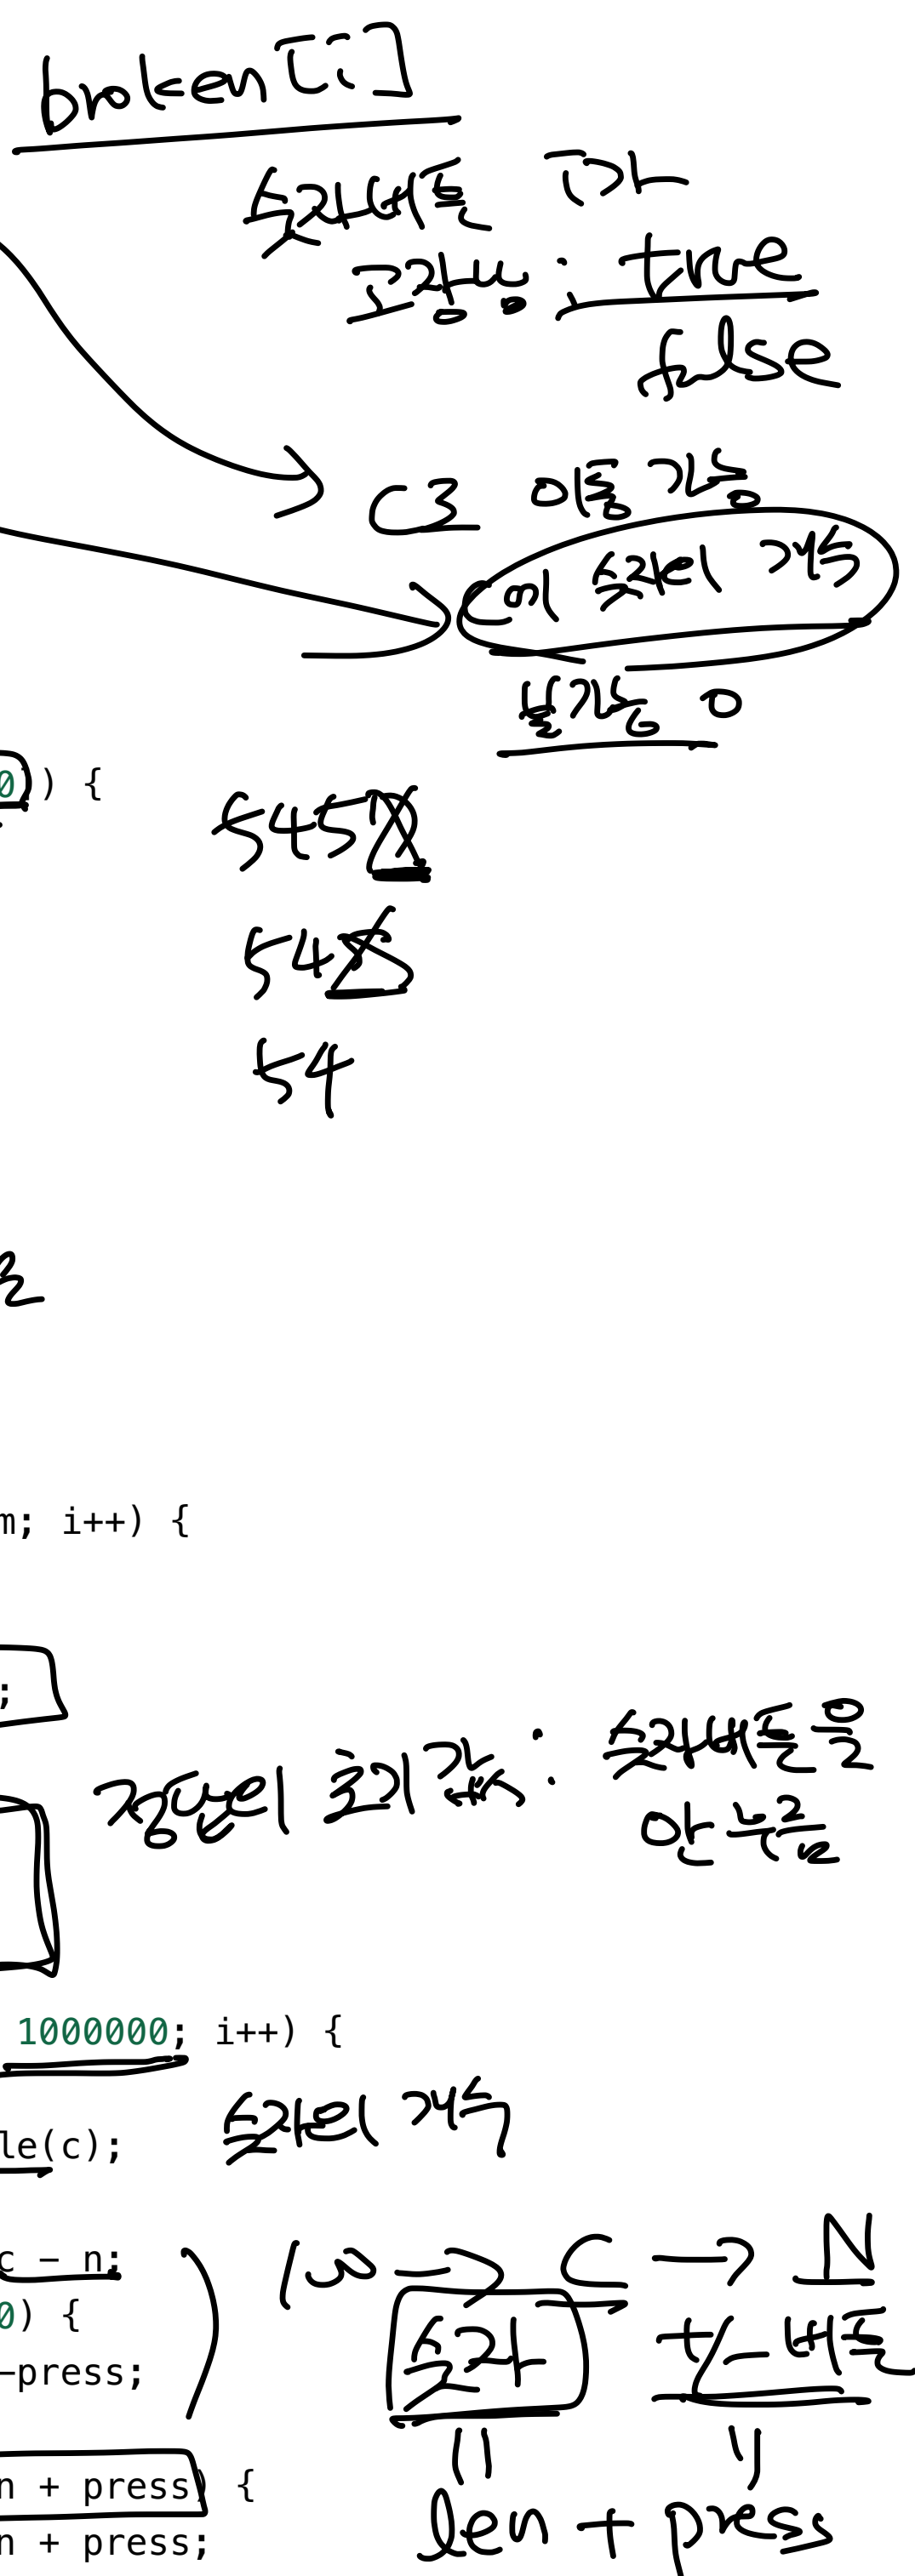 broken[i]
숫자버튼 i가
고장남 : true
false
C로 이동 가능
C의 숫자의 개수
불가능 0
0)) {
5457
545
54
m; i++) {
;
정답의 초기값 : 숫자버튼을
안 누름
1000000; i++) {
숫자의 개수
le(c);
c - n;
100 → C → N
0) {
숫자 +/- 버튼
-press;
n + press) {
len + press
n + press;